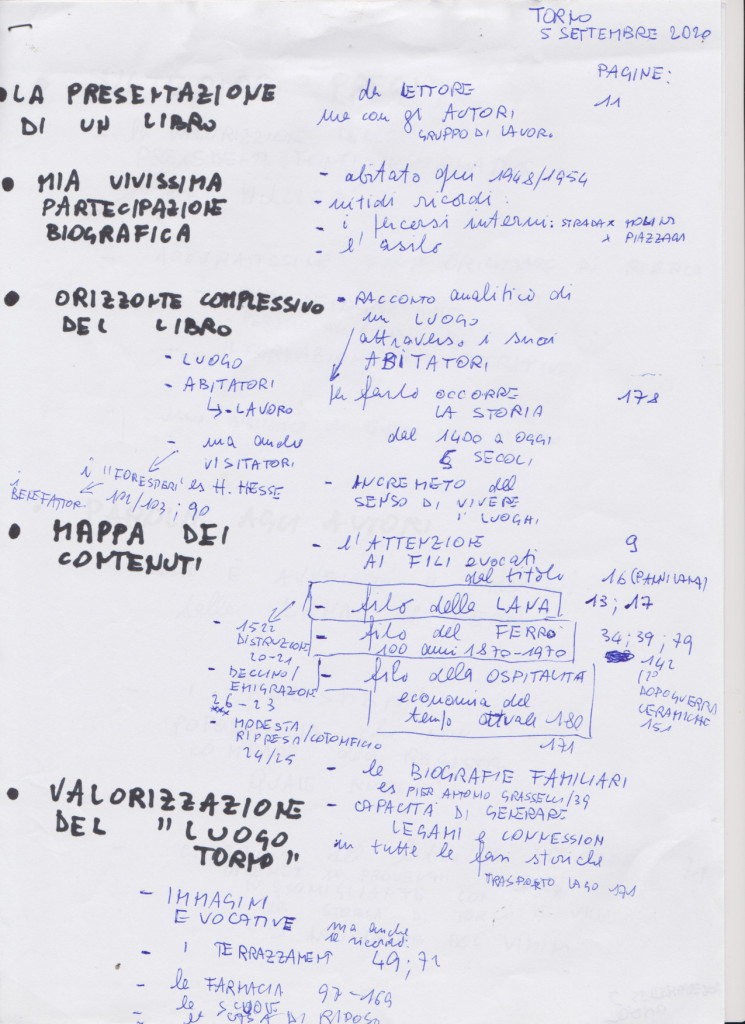 TORNO
5 SETTEMBRE 2020
PAGINE:
• LA PRESENTAZIONE
DI UN LIBRO
da LETTORE
ma con gli AUTORI
GRUPPO DI LAVORO
11
• MIA VIVISSIMA
PARTECIPAZIONE
BIOGRAFICA
- abitato qui 1948/1954
- nitidi ricordi:
- i percorsi interni: STRADA X MOLINO
X PIAZZAGA
- l'asilo
• ORIZZONTE COMPLESSIVO
DEL LIBRO
- LUOGO
- ABITATORI
↳ - LAVORO
- ma anche
VISITATORI
i "FORESTIERI" es H. HESSE
i
BENEFATTORI
102/103; 90
• RACCONTO analitico di
un LUOGO
attraverso i suoi
ABITATORI
per farlo OCCORRE
LA STORIA
178
dal 1400 a OGGI
5 SECOLI
- INCREMETO del
SENSO DI VIVERE
I LUOGHI
• MAPPA DEI
CONTENUTI
- l'ATTENZIONE
AI FILI evocati
dal titolo
9
16 (PANNILANA)
- filo della LANA
13; 17
- filo del FERRO
100 anni 1870-1970
34; 39; 79
142
DOPOGUERRA
CERAMICHE
151
- filo della OSPITALITÀ
economia del
tempo attuale 180
171
- 1522
DISTRUZIONE
20-21
- DECLINO/
EMIGRAZION
26-23
- MODESTA
RIPRESA/COTONIFICIO
24/25
- le BIOGRAFIE FAMILIARI
es PIER ANTONIO GRASSELLI/39
- CAPACITÀ DI GENERARE
LEGAMI e CONNESSION
in tutte le fasi storiche
TRASPORTO LAGO 171
• VALORIZZAZIONE
DEL "LUOGO
TORNO"
- IMMAGINI
EVOCATIVE
ma anche
- I TERRAZZAMENTI 49; 71
- la FARMACIA 97-169
- le SCUOLE
- la CASA DI RIPOSO